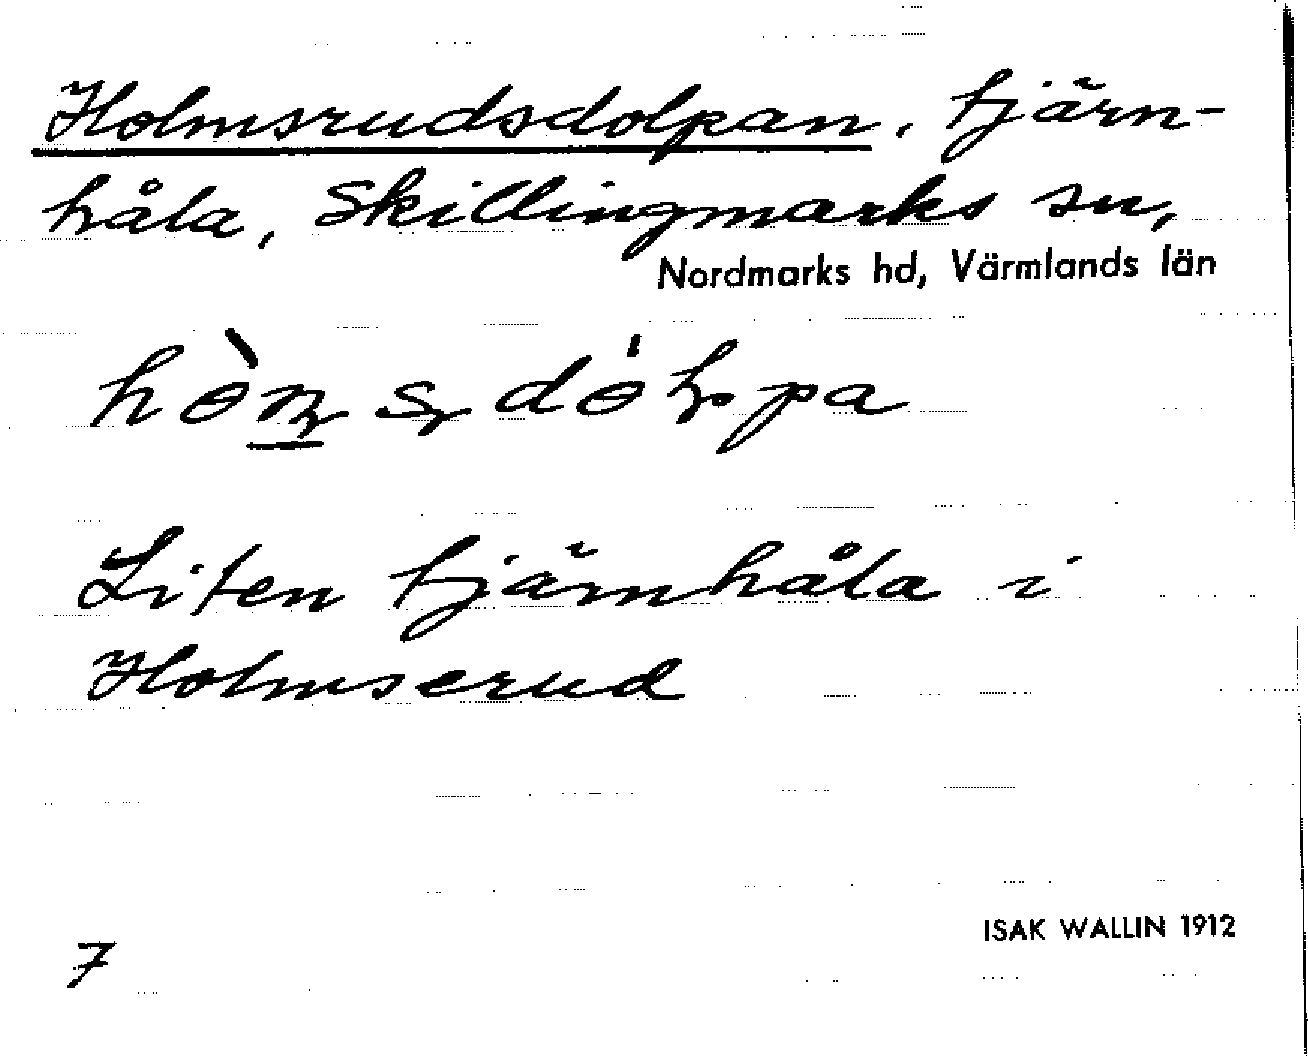 Holmsrudsdolpan, tjärn-
håla, Skillingmarks sn,
Nordmarks hd, Värmlands län
Liten tjärnhåla i
Holmserud
ISAK WALLIN 1912
7